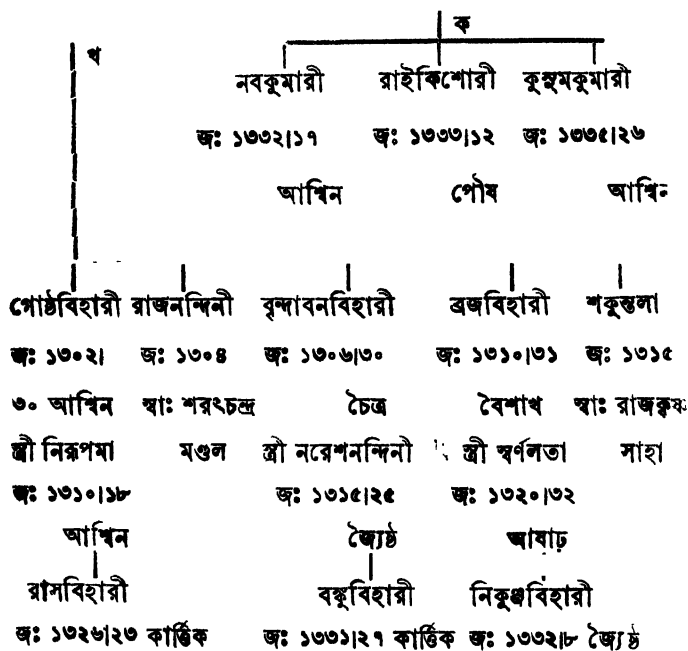 ক
খ
নবকুমারী রাইকিশোরী কুসুমকুমারী
জঃ ১৩৩২।১৭ জঃ ১৩৩৩।১২ জঃ ১৩৩৫।২৬
আশ্বিন পৌষ আশ্বিন
গোষ্ঠবিহারী রাজনন্দিনী বৃন্দাবনবিহারী ব্রজবিহারী শকুন্তলা
জঃ ১৩০২। জঃ ১৩০৪ জঃ ১৩০৬।৩০ জঃ ১৩১০।৩১ জঃ ১৩১৫
৩০ আশ্বিন স্বাঃ শরৎচন্দ্র চৈত্র বৈশাখ স্বাঃ রাজকৃষ্ণ
স্ত্রী নিরূপমা মণ্ডল স্ত্রী নরেশনন্দিনী স্ত্রী স্বর্ণলতা সাহা
জঃ ১৩১০।১৮ জঃ ১৩১৫।২৫ জঃ ১৩২০।৩২
আশ্বিন জ্যৈষ্ঠ আষাঢ়
রাসবিহারী বঙ্কুবিহারী নিকুঞ্জবিহারী
জঃ ১৩২৬।২৩ কার্ত্তিক জঃ ১৩৩১।২৭ কার্ত্তিক জঃ ১৩৩২।৮ জ্যৈষ্ঠ